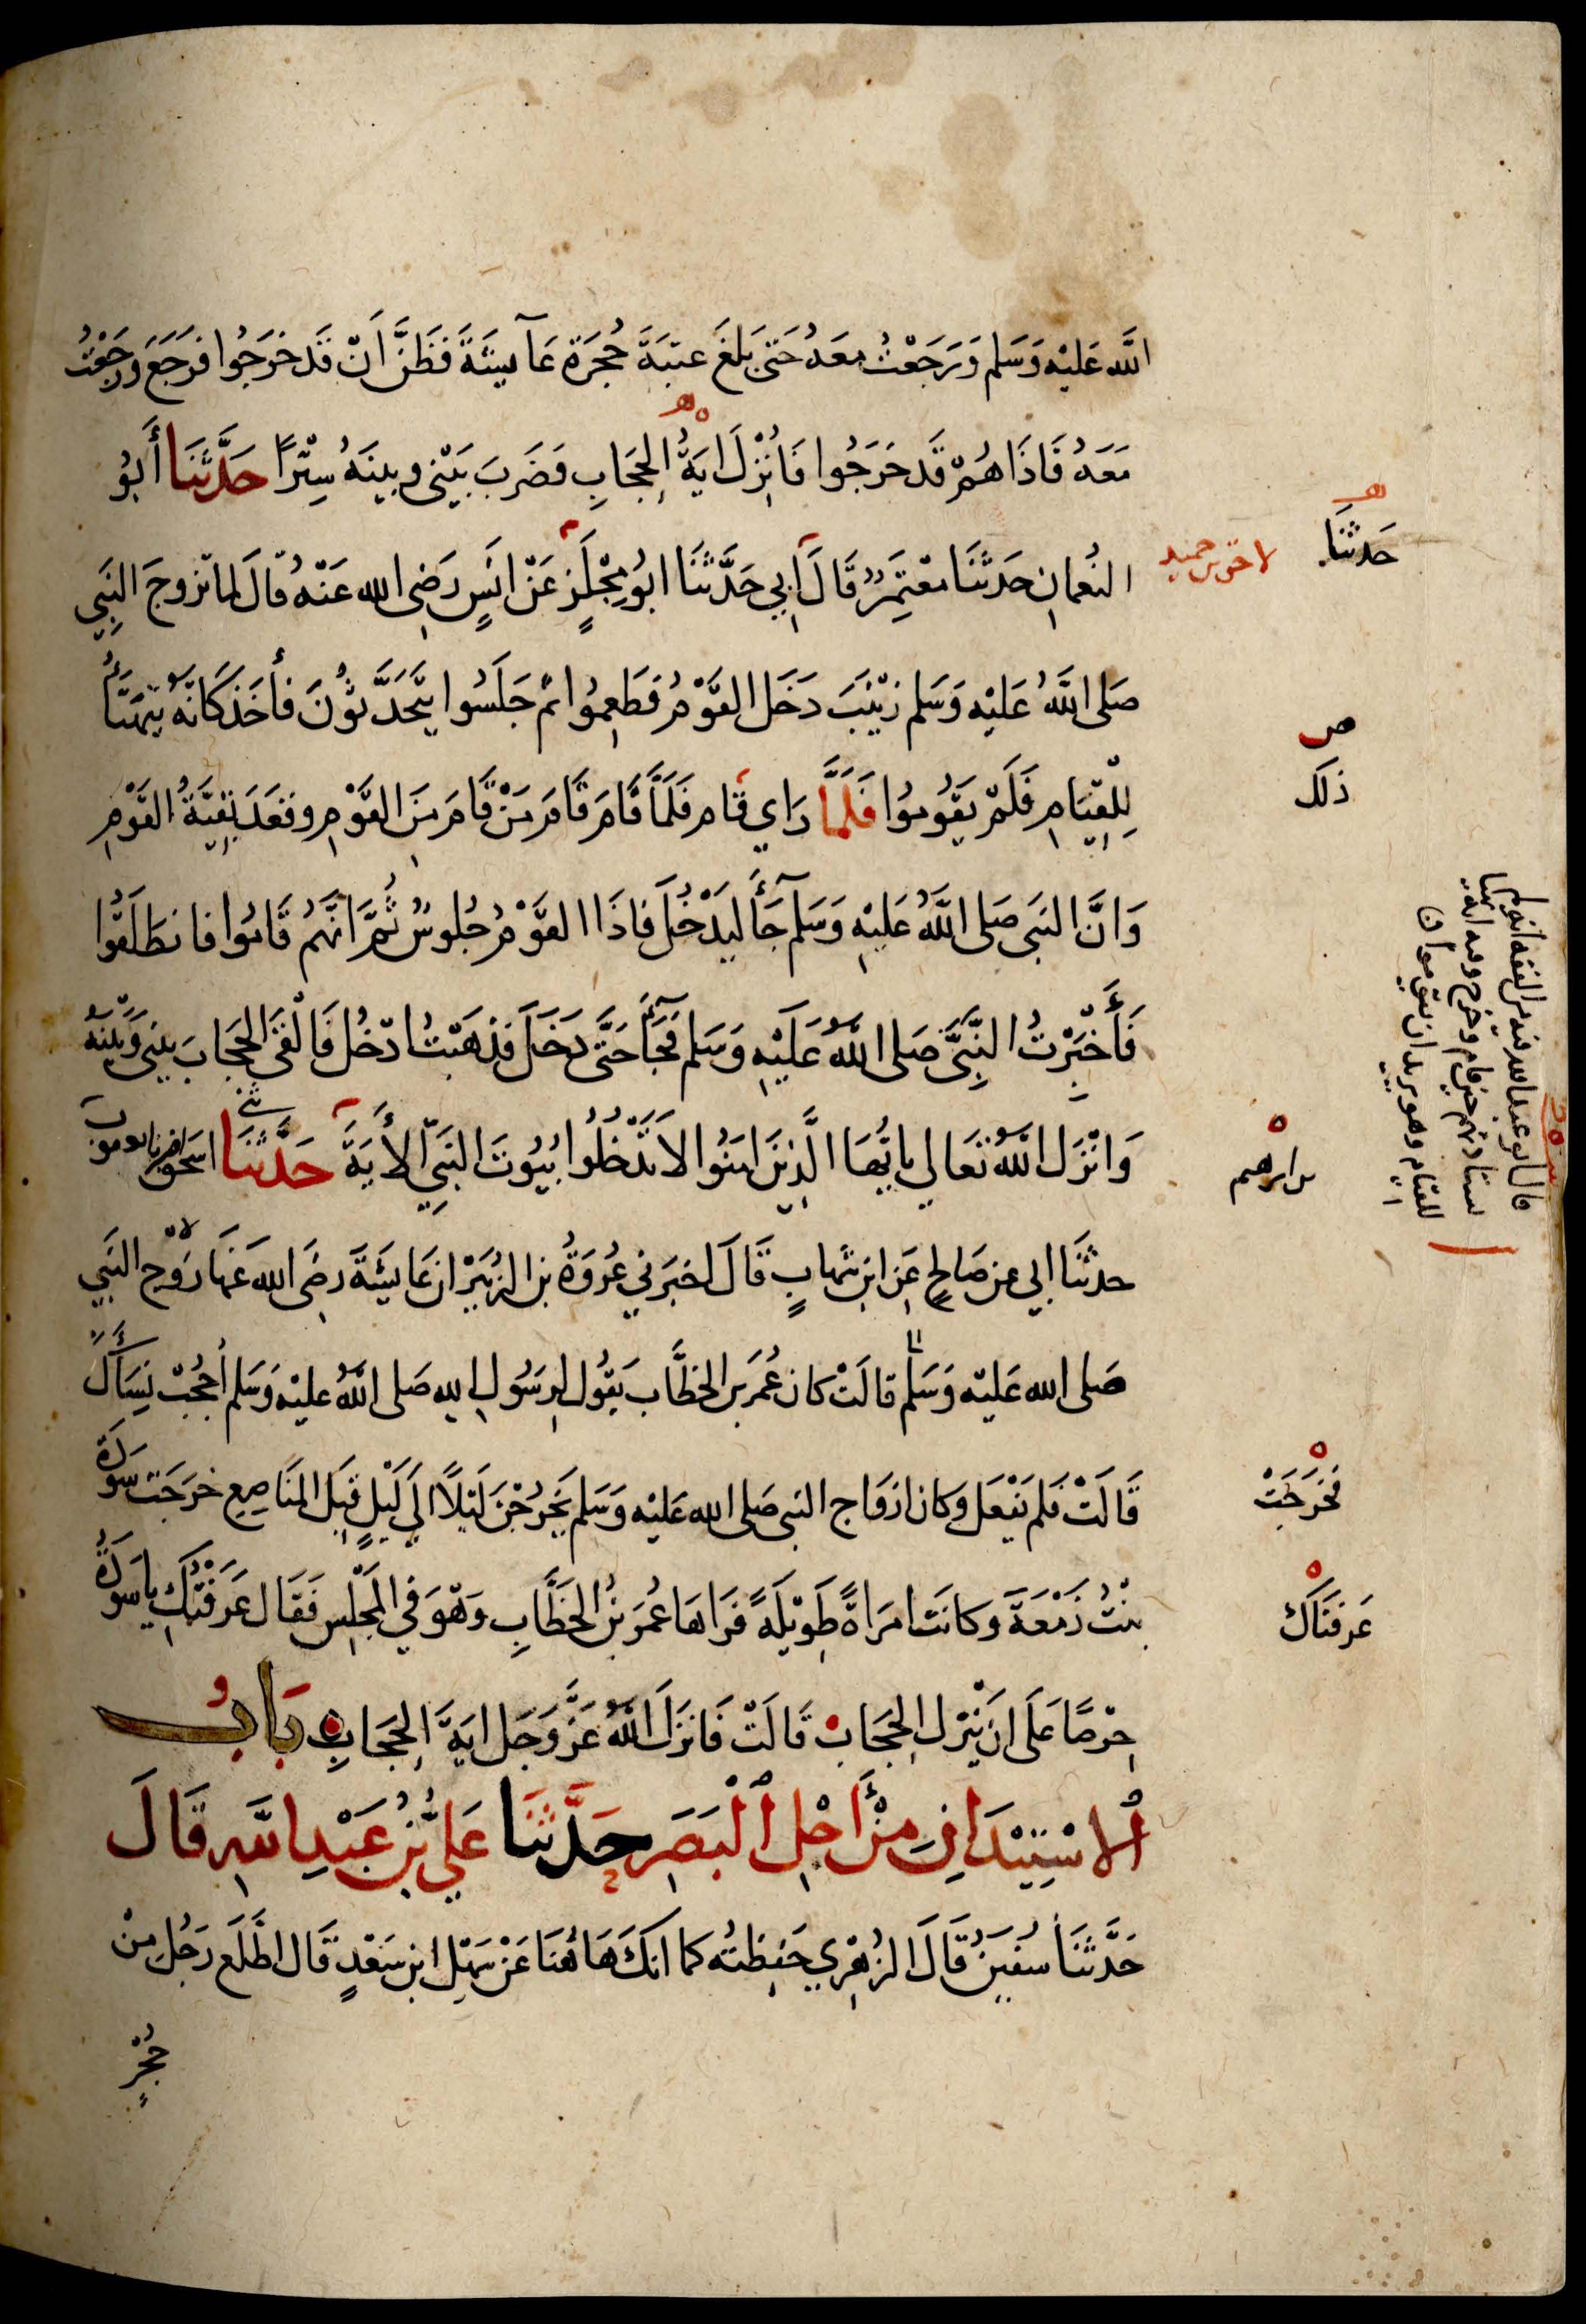 اللَّه عَليْه وَسَلم وَرَجَعْتُ معَهُ حَتى بَلغَ عتبَةَ حُجرَة عَآيشَةَ فَظَنَّ اَنْ قَد خرَجُوا فرَجَعَ ورَجَعْتُ
مَعَهُ فَاذَا هُمْ قَد خرَجُوا فَأُنْزِلَ ايَةُ الحِجَابِ فَضَربَ بَيْنى وبينَهُ سِتْرًا حَدَّثَنَا أَبُو
النُعمانِ حَدثَنَا مُعْتَمِرٌ قَالَ اَبي حَدَّثَنَا ابُو مِجْلَزٍ عَنْ انَسٍ رَضِى الله عَنْهُ قالَ لما تزوجَ النَبِي
صَلى اللَّهُ عَليْه وَسَلم زيْنَبَ دَخَل القَوْمُ فطَعِمُوا ثم جَلَسُوا يتَحَدَّثُونَ فأخَذ كَانّهُ يتَهَيَّأُ
لِلْقِيَامِ فَلَمْ يَقُومُوا فَلَمَّا رَاي قَام فَلَمَّا قَامَ قَامَ مَنْ قَامَ مِنَ القَوْمِ وقعَدَ بَقِيَّةُ القَوْمِ
وَانَّ النَبى صَلى اللَّهُ عَليْهِ وَسَلم جَآءَ ليَدْخُلَ فاذَا القَوْمُ جُلوسٌ ثُمَّ انَّهُم قَامُوا فانطَلَقُوا
فَأَخْبَرْتُ النَبِيَّ صَلى اللَّهُ عَلَيْهِ وَسَلم فَجَآءَ حَتَّى دَخَلَ فذهَبْتُ ادْخُل فَالْقَى الحِجَابَ بيني وَبَيْنهُ
وَانْزَل اللَّهُ تعَالي يا يُّهَا الَّذِينَ امَنُوا لاَ تَدْخُلُوا بُيُوتَ النَبِيِّ الأَيَةَ حَدَّثنَا اسحَق
حدثنَا ابي عن صَالحٍ عَنِ ابْنِ شهابٍ قَالَ اخبَرَني عُروَةُ بن الزبَيْرْ ان عَايشَةَ رضِىَ الله عَنهَا زَوْجَ النَبي
صَلى الله عَليْه وَسَلم قالَتْ كان عُمَر بن الخطَّاب يَقُول لِرسَول الله صَلى اللَّهُ عليْه وَسَلم أحجُبْ نِسَآءَكَ
قَالَتْ فَلم يَفْعَل وَكان ازوَاج النبى صَلى الله عَليْه وَسَلم يَخْرُجْنَ لَيْلاً الَي لَيْلٍ قِبَل المنَاصِعِ خرَجَت سَودَةُ
بنْتُ زَمْعَةَ وَكانَتْ امرَاةً طَوِيْلَةً فَرَاهَا عُمَرُ بنُ الخَطَّابِ وَهْوَ في المَجْلِس فَقَال عَرَفْتُكِ يا سَودَةُ
حِرْصًا عَلَى اَن يُنْزلَ الحِجَابُ قَالَتْ فَانزَلَ اللَّهُ عَزَّ وَجَل ايَةَ الحِجَابِ بَابُ
اُلاسْتِيْذَانِ مِنْ أَجْلِ اُلْبَصَرِ حَدَّثنَا عَليُّ بْنُ عَبْدِ اللَّهِ قَالَ
حَدَّثنَا سُفيَنُ قَالَ الزُهْرِي حَفِظتُه كما انَكَ هَاهُنَا عَنْ سَهْلِ ابنِ سَعْدٍ قَال اطَّلَع رَجُل مِنْ
حُجْرٍ
حَدثنَا
ذلكَ
بن ابرهيم
فخَرَجَتْ
عَرفنَاكِ
قال ابو عبد الله فيه من الفقه انه لم
يستاذنهم حين قام وخرج وفيه انه تهيا
للقيام وهو يريد ان يقوموا